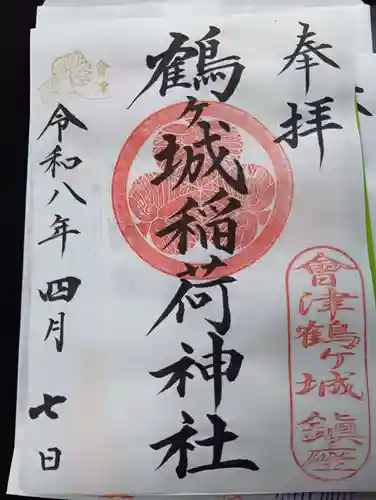 奉拝
會津鶴ヶ城鎮座
鶴ヶ城稲荷神社
會津
令和八年四月七日